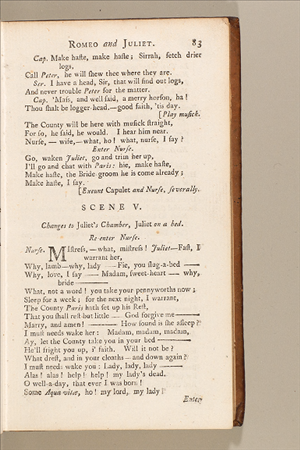 ROMEO and JULIET. 83
Cap. Make haſte, make haſte; Sirrah, fetch drier
logs.
Call Peter, he will ſhew thee where they are.
Ser. I have a head, Sir, that will find out logs,
And never trouble Peter for the matter.
Cap. 'Maſs, and well ſaid, a merry horſon, ha!
Thou ſhalt be logger-head.—good faith, 'tis day.
[Play muſick.
The County will be here with muſick ſtraight,
For ſo, he ſaid, he would. I hear him near.
Nurſe,—wife,—what, ho! what, nurſe, I ſay?
Enter Nurſe.
Go, waken Juliet, go and trim her up,
I'll go and chat with Paris: hie, make haſte,
Make haſte, the Bride-groom he is come already;
Make haſte, I ſay.
[Exeunt Capulet and Nurſe, ſeverally.
SCENE V.
Changes to Juliet's Chamber, Juliet on a bed.
Re-enter Nurſe.
Nurſe. MIſtreſs,—what, miſtreſs! Juliet—Faſt, I
warrant her,
Why, lamb—why, lady—Fie, you ſlug-a-bed—
Why, love, I ſay—Madam, ſweet-heart—why,
bride—
What, not a word! you take your pennyworths now;
Sleep for a week; for the next night, I warrant,
The County Paris hath ſet up his Reſt,
That you ſhall reſt but little—God forgive me—
Marry, and amen!—How found is ſhe aſleep?
I muſt needs wake her: Madam, madam, madam,
Ay, let the County take you in your bed—
He'll fright you up, i' faith. Will it not be?
What dreſt, and in your cloaths—and down again?
I muſt needs wake you: Lady, lady, lady—
Alas! alas! help! help! my lady's dead.
O well-a-day, that ever I was born!
Some Aqua vitæ, ho! my lord, my lady!
Enter